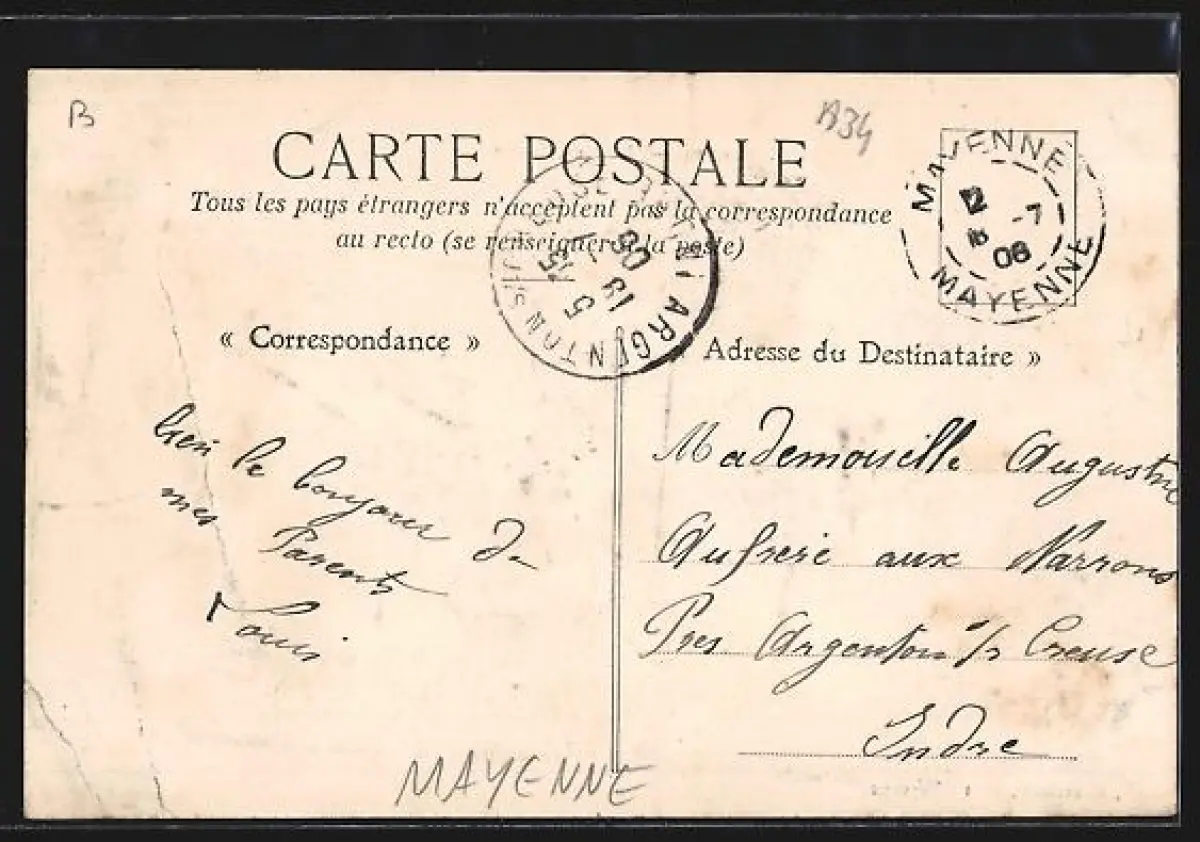 B
A34
CARTE POSTALE
Tous les pays étrangers n'acceptent pas la correspondance
au recto (se renseigner à la poste)
MAYENNE
12
-7
08
MAYENNE
5
18
08
ARGENTON S
« Correspondance »
Adresse du Destinataire »
le bonjour de
mes Parents
Louis
Mademoiselle Augustine
Aufrere aux Narrons
Pres Argenton s/r Creuse
Indre
MAYENNE